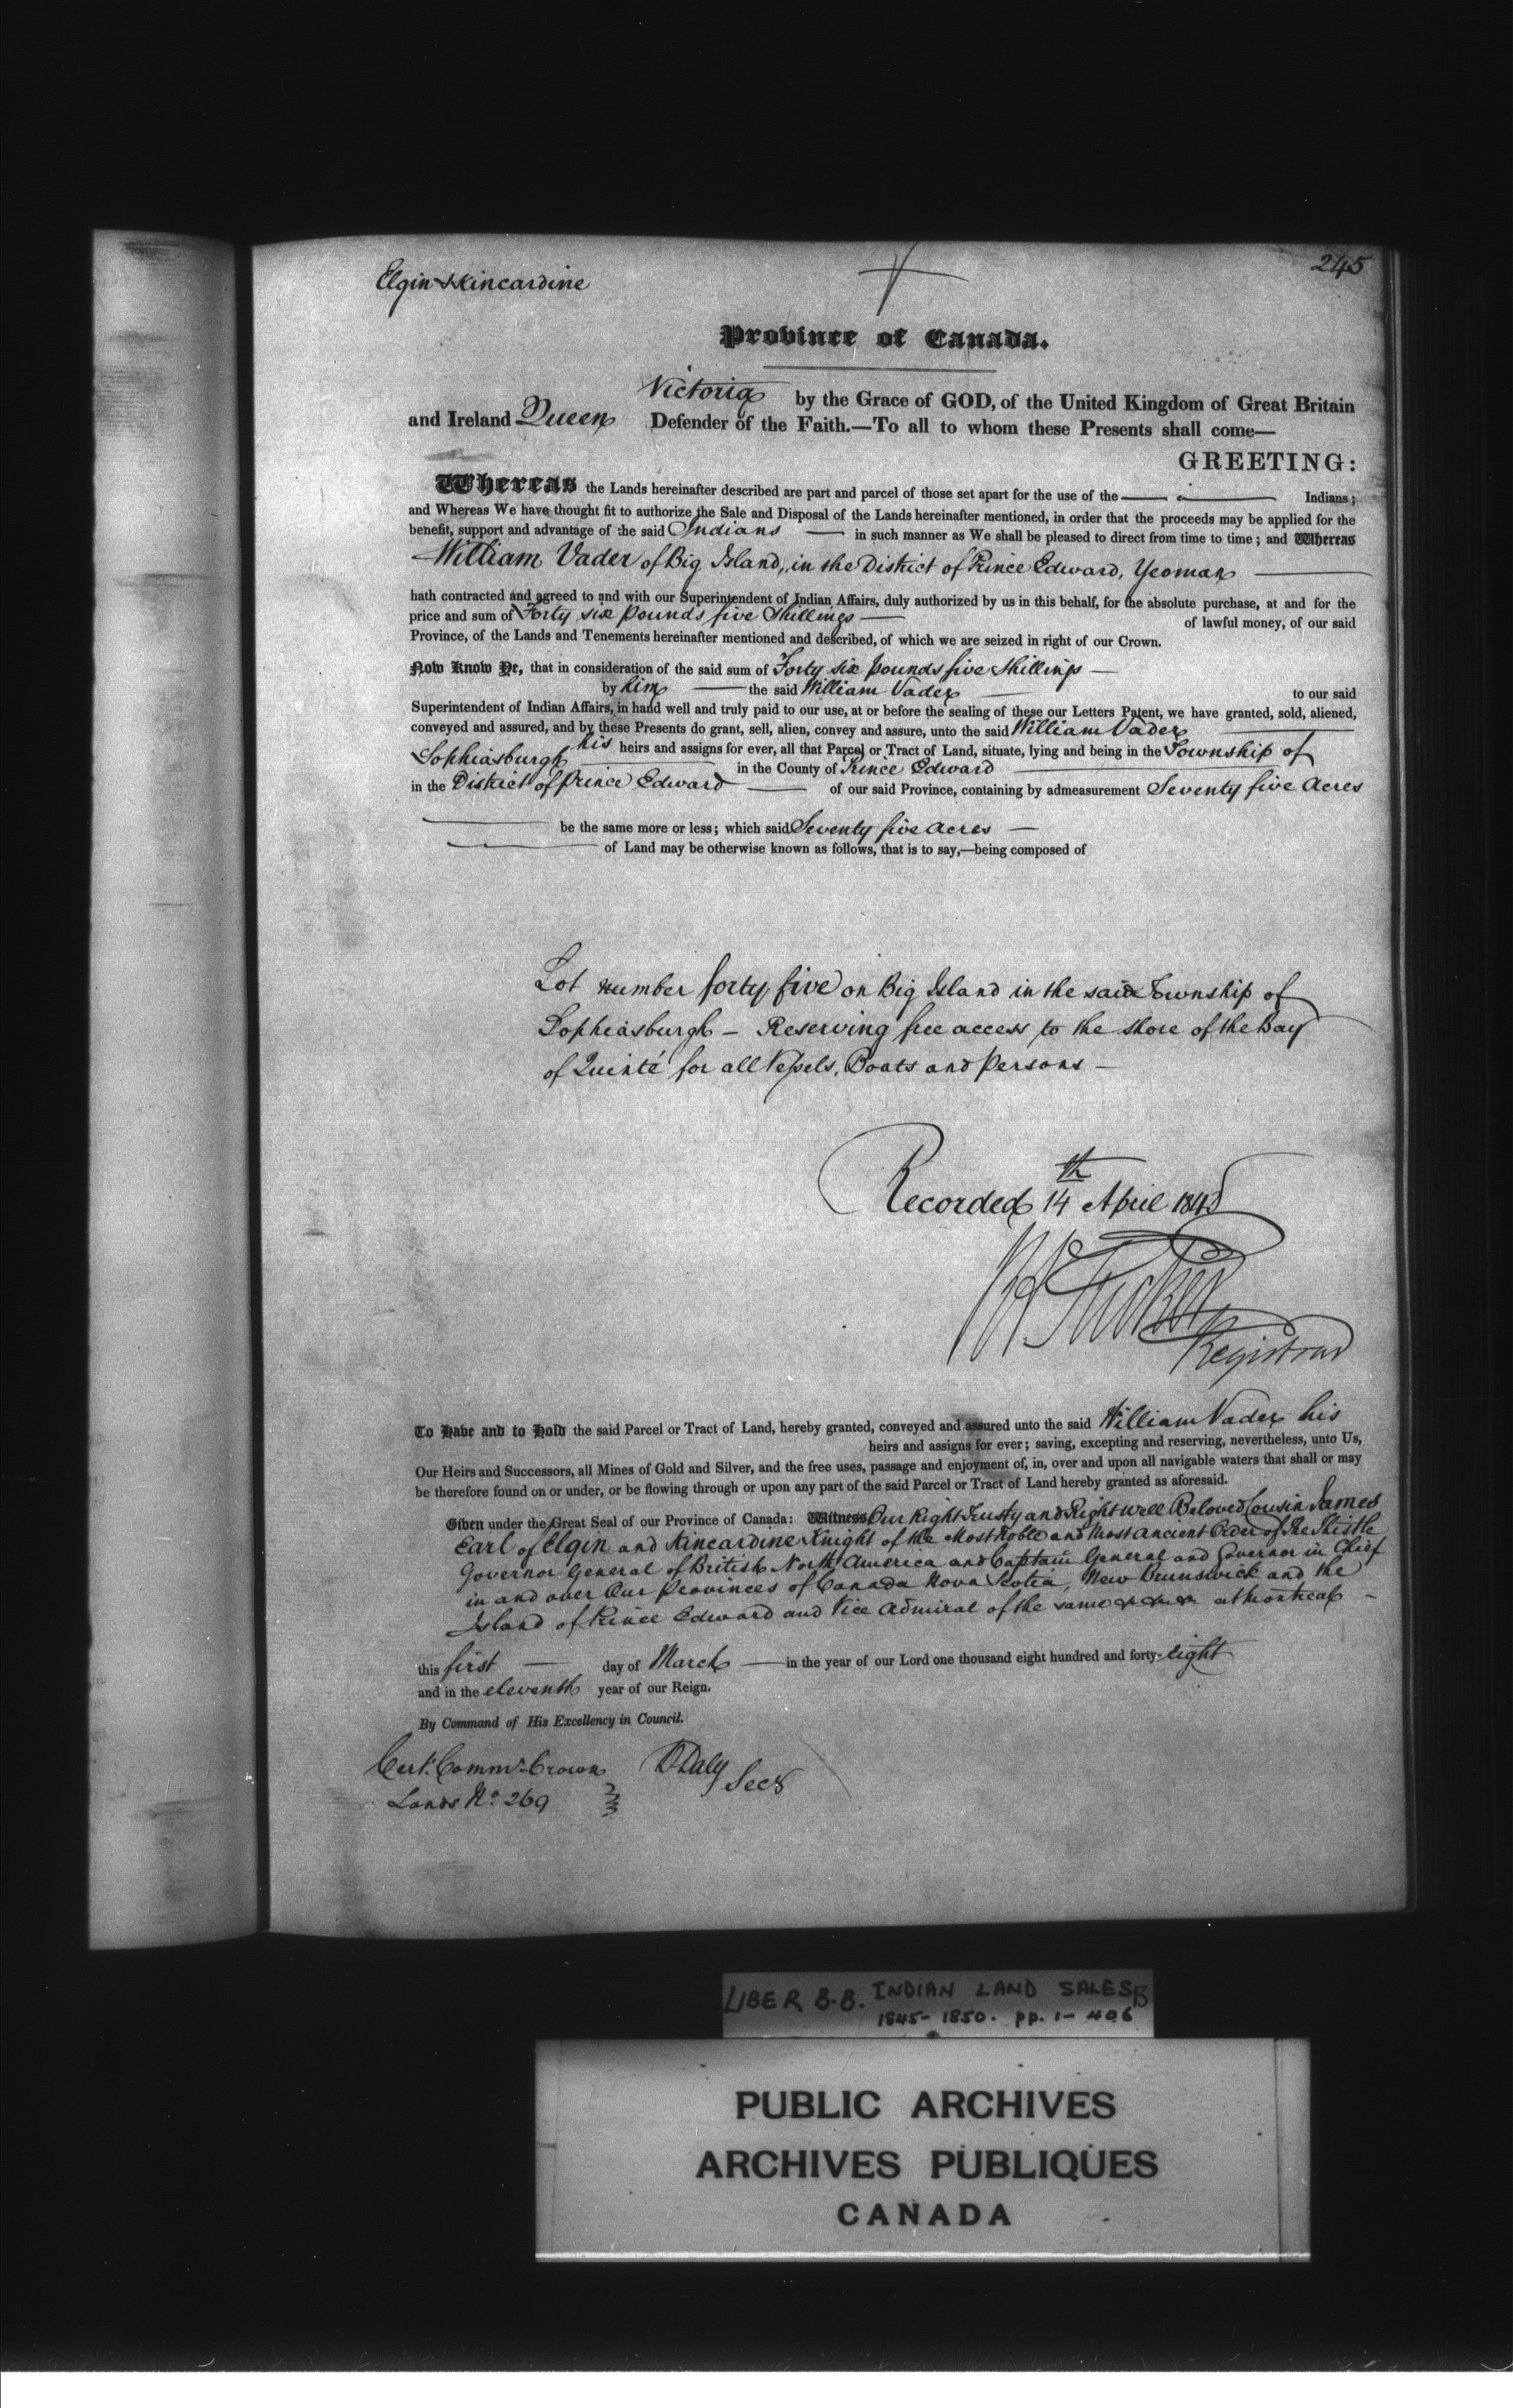 245
Elgin & Kincardine
Province of Canada.
Victoria by the Grace of GOD, of the United Kingdom of Great Britain
and Ireland Queen Defender of the Faith.—To all to whom these Presents shall come—
GREETING:
Whereas the Lands hereinafter described are part and parcel of those set apart for the use of the Indians;
and Whereas We have thought fit to authorize the Sale and Disposal of the Lands hereinafter mentioned, in order that the proceeds may be applied for the
benefit, support and advantage of the said Indians — in such manner as We shall be pleased to direct from time to time; and Whereas
William Vader of Big Island, in the District of Prince Edward, Yeoman
hath contracted and agreed to and with our Superintendent of Indian Affairs, duly authorized by us in this behalf, for the absolute purchase, at and for the
price and sum of Forty six pounds five Shillings — of lawful money, of our said
Province, of the Lands and Tenements hereinafter mentioned and described, of which we are seized in right of our Crown.
Now Know Ye, that in consideration of the said sum of Forty six pounds five Shillings —
by him — the said William Vader — to our said
Superintendent of Indian Affairs, in hand well and truly paid to our use, at or before the sealing of these our Letters Patent, we have granted, sold, aliened,
conveyed and assured, and by these Presents do grant, sell, alien, convey and assure, unto the said William Vader
his heirs and assigns for ever, all that Parcel or Tract of Land, situate, lying and being in the Township of
Sophiasburgh in the County of Prince Edward
in the District of Prince Edward — of our said Province, containing by admeasurement Seventy five Acres
be the same more or less; which said Seventy five Acres —
of Land may be otherwise known as follows, that is to say,—being composed of
Lot number forty five on Big Island in the said Township of
Sophiasburgh — Reserving free access to the shore of the Bay
of Quinté for all Vessels, Boats and persons —
Recorded 14th April 1848
Tucker
Registrar
To Have and to Hold the said Parcel or Tract of Land, hereby granted, conveyed and assured unto the said William Vader his
heirs and assigns for ever; saving, excepting and reserving, nevertheless, unto Us,
Our Heirs and Successors, all Mines of Gold and Silver, and the free uses, passage and enjoyment of, in, over and upon all navigable waters that shall or may
be therefore found on or under, or be flowing through or upon any part of the said Parcel or Tract of Land hereby granted as aforesaid.
Given under the Great Seal of our Province of Canada: Witness Our Right Trusty and Right Well Beloved Cousin James
Earl of Elgin and Kincardine Knight of the Most Noble and Most Ancient Order of The Thistle
Governor General of British North America and Captain General and Governor in Chief
in and over Our Provinces of Canada Nova Scotia, New Brunswick and the
Island of Prince Edward and Vice Admiral of the same &c &c &c at Montreal —
this first — day of March — in the year of our Lord one thousand eight hundred and forty-eight
and in the eleventh year of our Reign.
By Command of His Excellency in Council.
Cert. Commr. Crown
Lands No. 269
D Daly
Secy
LIBER B.B. INDIAN LAND SALES B
1845-1850. pp. 1-406
PUBLIC ARCHIVES
ARCHIVES PUBLIQUES
CANADA